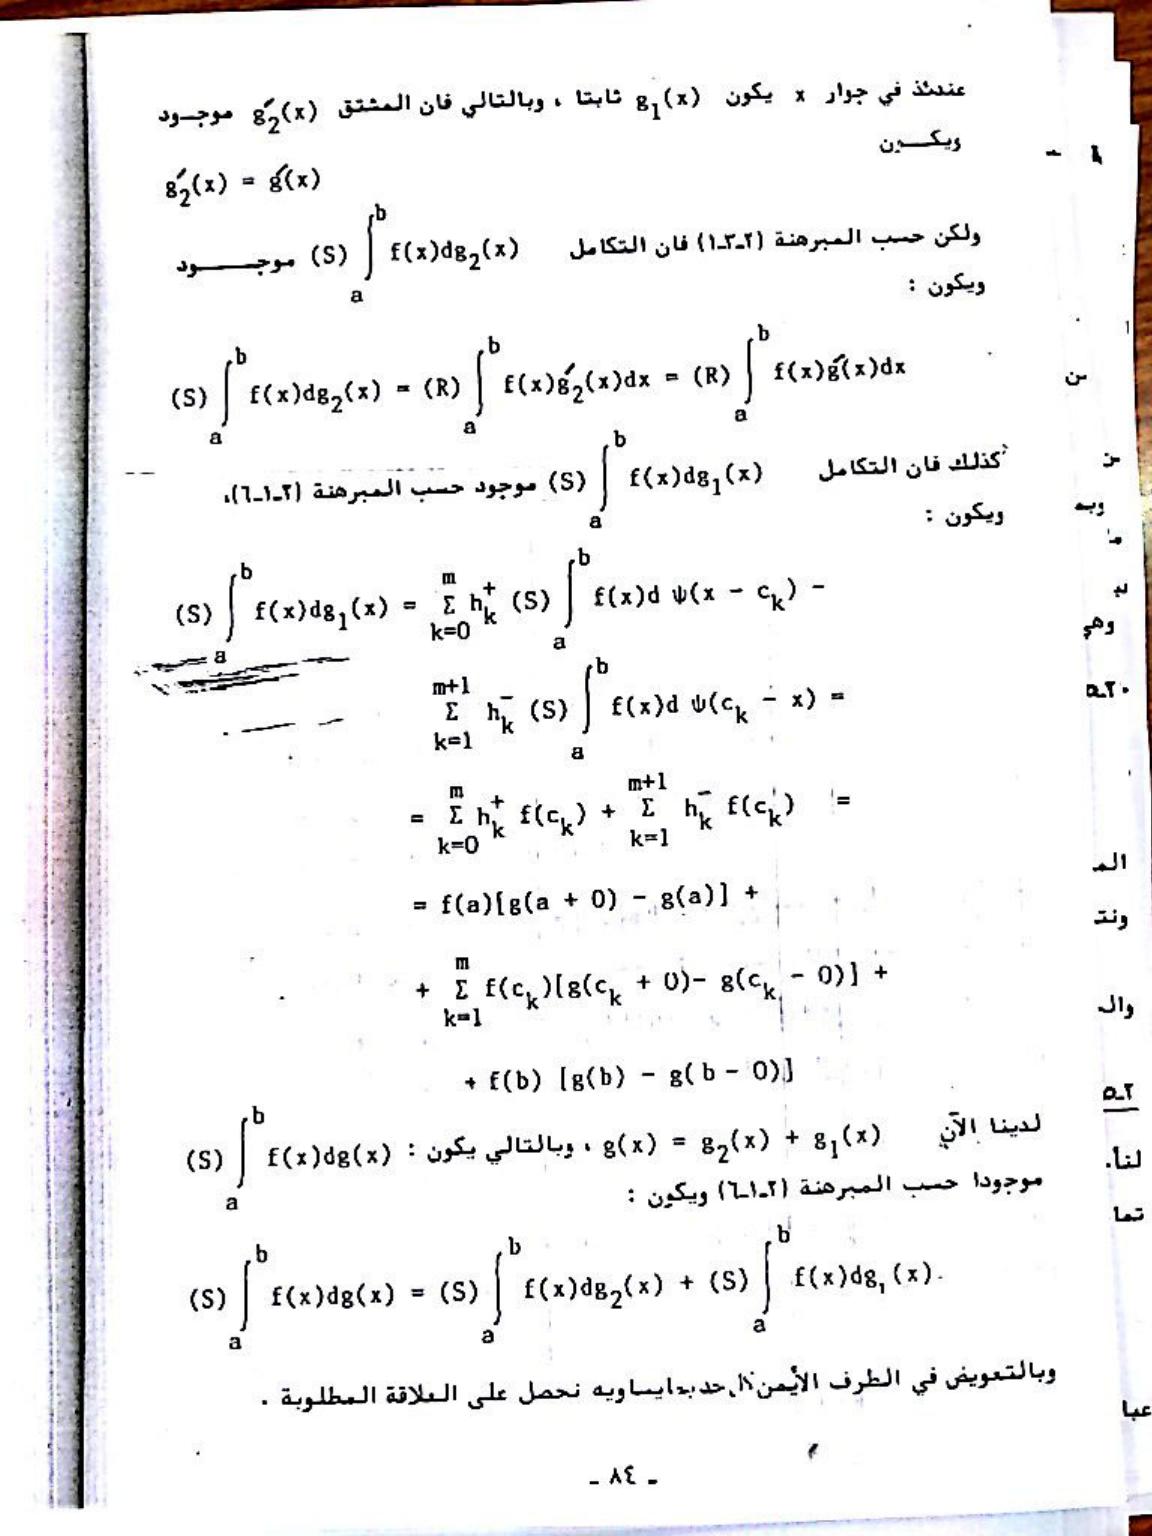 عندئذ في جوار x يكون g₁(x) ثابتا ، وبالتالي فان المشتق g₂′(x) موجود
ويكون
g₂′(x) = g′(x)
ولكن حسب المبرهنة (٢ـ٣ـ١) فان التكامل (S) ∫ₐᵇ f(x)dg₂(x) موجود
ويكون :
(S) ∫ₐᵇ f(x)dg₂(x) = (R) ∫ₐᵇ f(x)g₂′(x)dx = (R) ∫ₐᵇ f(x)g′(x)dx
كذلك فان التكامل (S) ∫ₐᵇ f(x)dg₁(x) موجود حسب المبرهنة (٢ـ١ـ٦)،
ويكون :
(S) ∫ₐᵇ f(x)dg₁(x) = Σ_{k=0}^{m} h_k⁺ (S) ∫ₐᵇ f(x)d ψ(x - c_k) -
Σ_{k=1}^{m+1} h_k⁻ (S) ∫ₐᵇ f(x)d ψ(c_k - x) =
= Σ_{k=0}^{m} h_k⁺ f(c_k) + Σ_{k=1}^{m+1} h_k⁻ f(c_k) =
= f(a)[g(a + 0) - g(a)] +
+ Σ_{k=1}^{m} f(c_k)[g(c_k + 0)- g(c_k - 0)] +
+ f(b) [g(b) - g(b - 0)]
لدينا الآن g(x) = g₂(x) + g₁(x) ، وبالتالي يكون : (S) ∫ₐᵇ f(x)dg(x)
موجودا حسب المبرهنة (٢ـ١ـ٦) ويكون :
(S) ∫ₐᵇ f(x)dg(x) = (S) ∫ₐᵇ f(x)dg₂(x) + (S) ∫ₐᵇ f(x)dg₁(x).
وبالتعويض في الطرف الأيمن يساويه نحصل على العلاقة المطلوبة .
- ٨٤ -